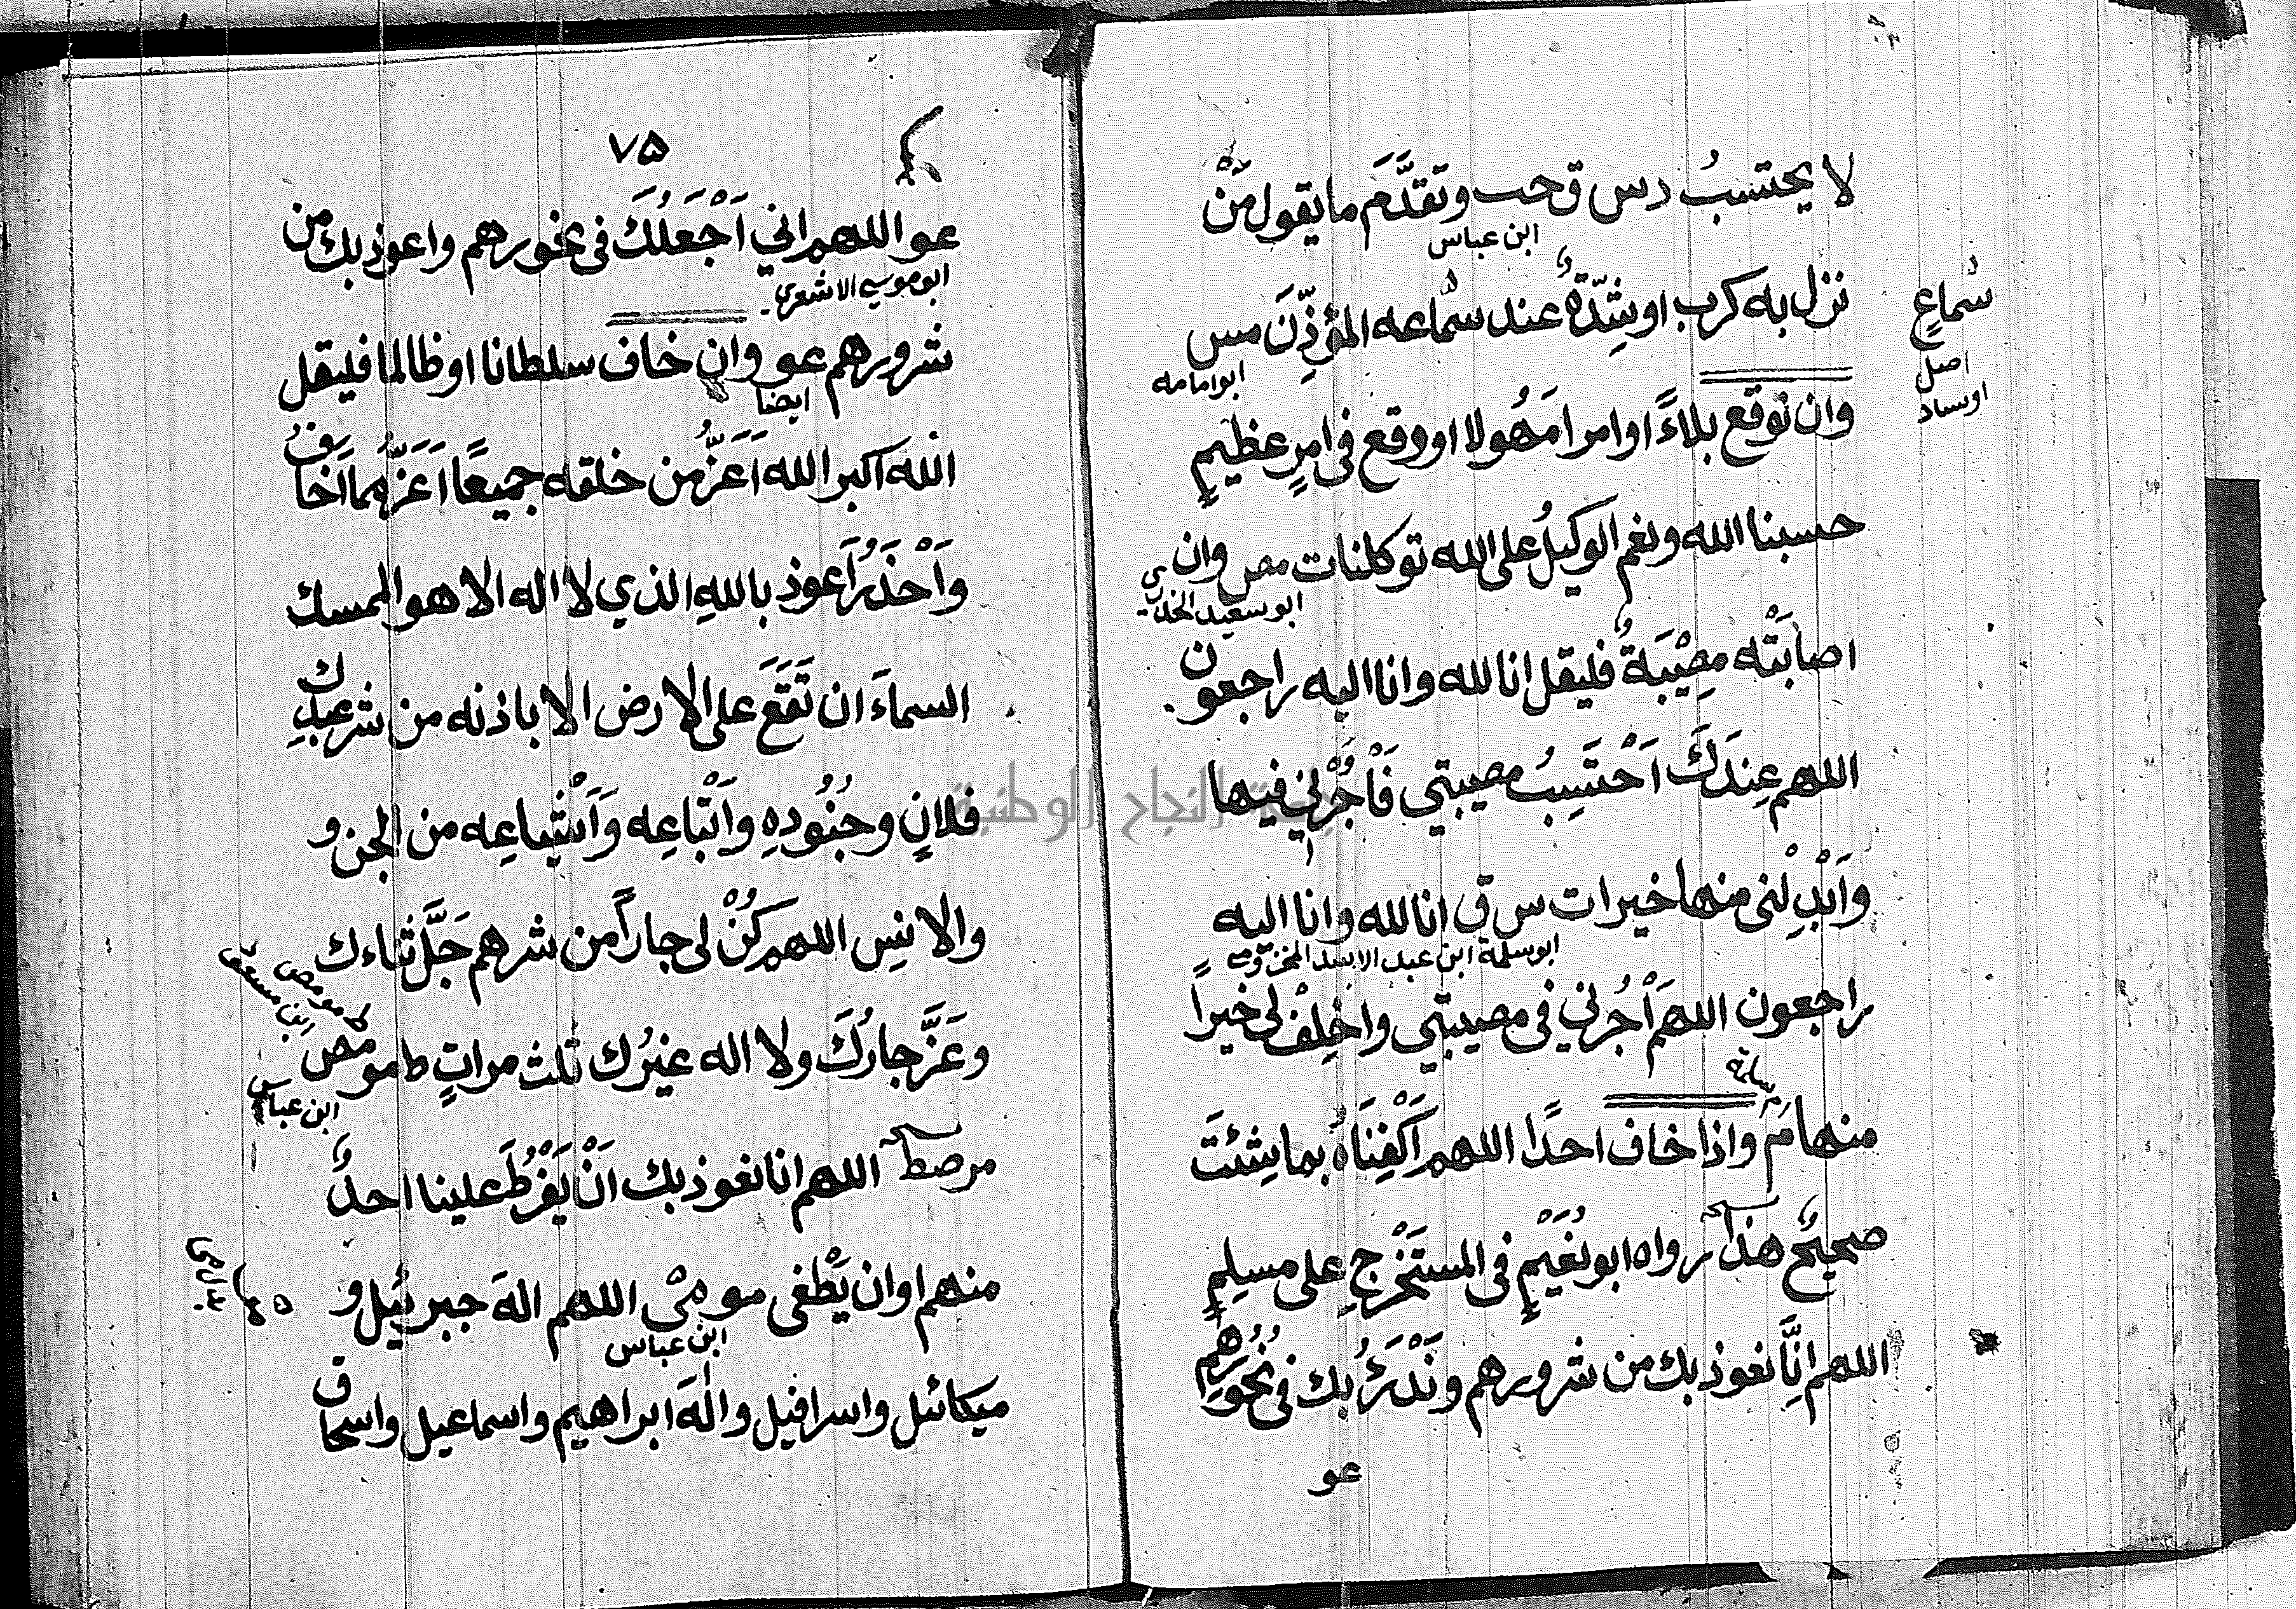 لا يحتسبُ دس ق حب وتقدَّم ما يقول مَنْ
ابن عباس
نزل به كرب او شِدّةٌ عند سماعه المؤذِّنَ مس
ابو امامه
سماعِ
اصل
وان توقع بلاءً او امرا مَهُولا او وقع فى امرٍ عظيمٍ
حسبنا الله ونعم الوكيلُ على الله توكلنا ت مص وان
ابو سعيد الخدري
اصابَتْه مصِيْبَةٌ فليقل انا لله وانا اليه راجعون
اللهم عِندَكَ اَحْتَسِبُ مصيبتي فَأْجُرْنِي فيها
وَاَبْدِلْنى منها خيرا ت س ق انا لله وانا اليه
ابو سلمة ابن عبد الاسد المخزومي
راجعون اللهم أْجُرْني في مصيبتي واخْلِفْ لى خيراً
سلمة
منها مَ واذا خاف احدًا اللهم اَكْفِنَاهُ بما شِئتَ
صحيحٌ هذا رواه ابو نُعَيْمٍ فى المستَخْرَجِ على مسلِمٍ
اللهم اِنَّا نعوذ بك من شرورهم ونَدْرَؤُ بك فى نُحُورِهم
عو
٧٥
عو اللهم اني اَجْعَلُكَ فى نحورهم واعوذ بك من
ابو موسي الاشعري
شرورهم عو وان خاف سلطانا او ظالما فليقل
ايضا
الله اكبر الله اَعَزُّ من خلقه جميعًا اَعَزُّ مما اَخَافُ
وَاَحْذَرُ اَعوذ باللهِ الذي لا اله الا هو الممسك
السماءَ ان تَقَعَ على الارض الا باذنه من شر عبدِك
فلانٍ وجُنُودِهِ واَتْبَاعِه وَاَشْيَاعِه من الجن و
والانسِ اللهم كُنْ لى جاراً من شرهم جَلَّ ثناءك
ط مو مص
ابن مسعود
وعَزَّ جارُكَ ولا اله غيرُك ثلث مراتٍ ط مو مص
ابن عباس
مر صط اللهم انا نعوذ بك اَنْ يَفْرُطَ علينا احدٌ
منهم او ان يَطْغى مو مى اللهم الهَ جبرئيل و
ابن عباس
ميكائل واسرافيل والٰهَ ابراهيم واسماعيل واسحاق
جامعة النجاح الوطنية